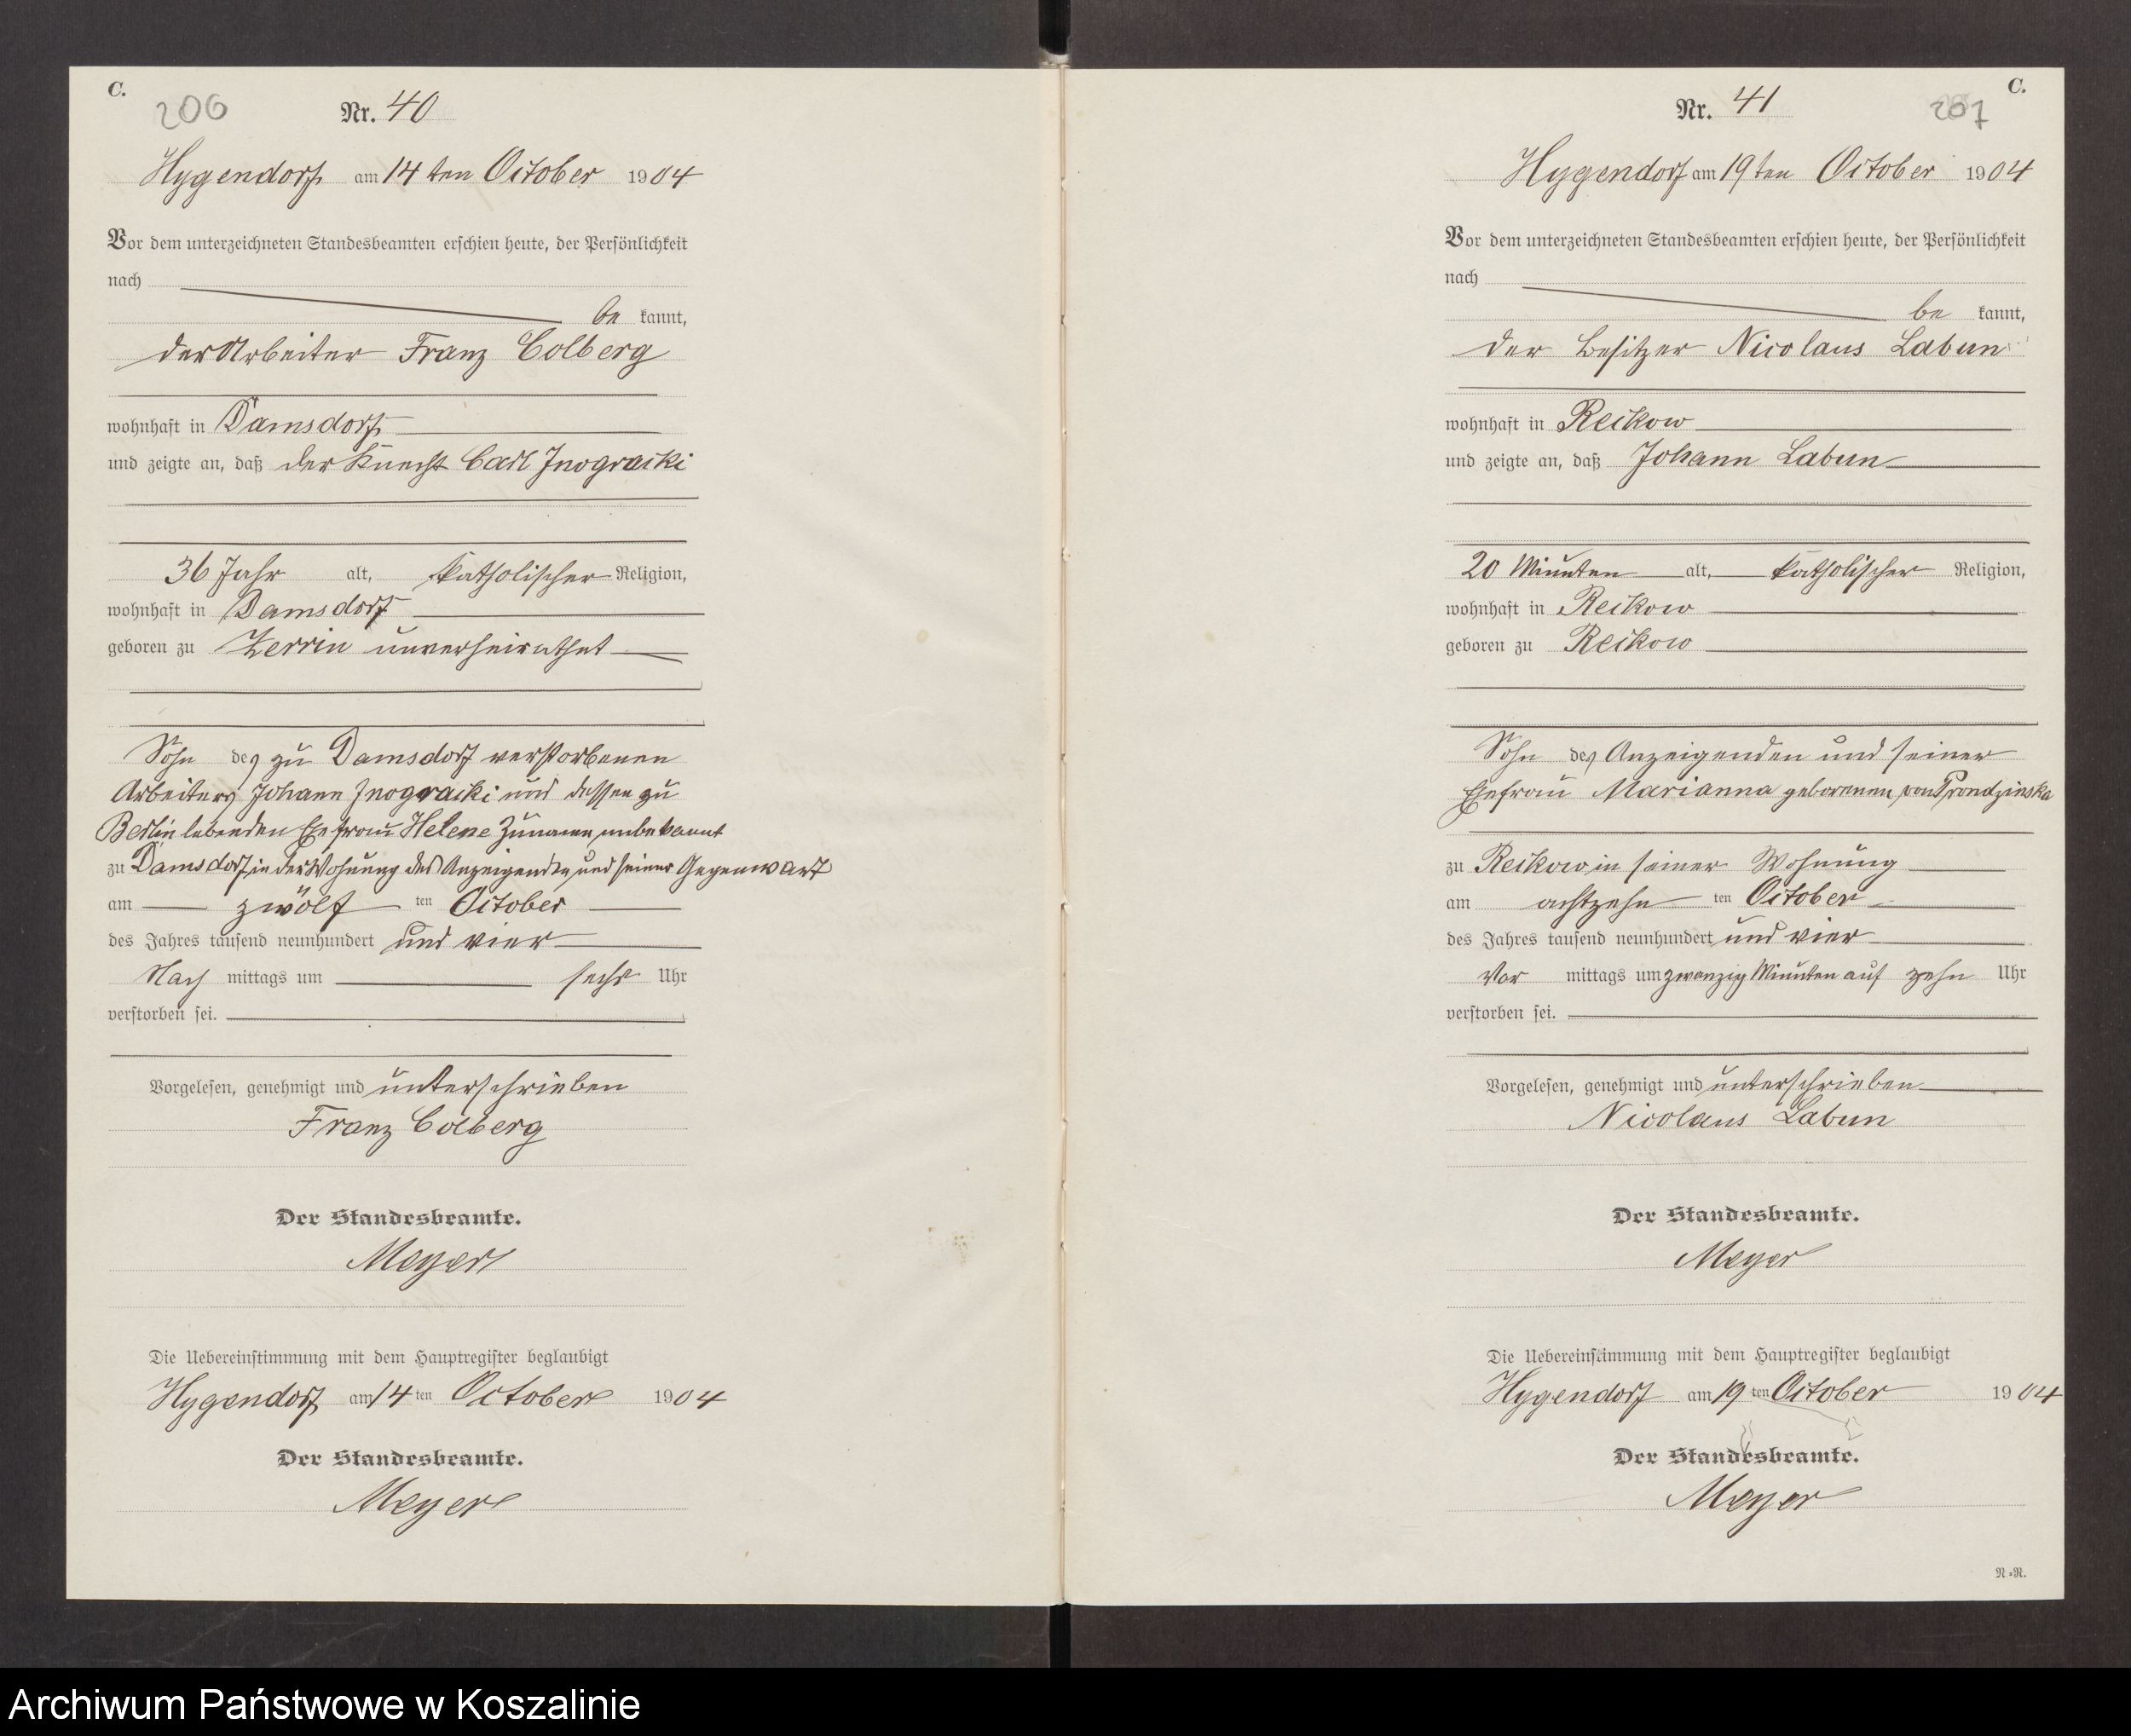 C.
206
Nr. 40
Hygendorf am 14 ten October 1904
Vor dem unterzeichneten Standesbeamten erschien heute, der Persönlichkeit
nach
be kannt,
der Arbeiter Franz Colberg
wohnhaft in Damsdorf
und zeigte an, daß der Knecht Carl Jnogracki
36 Jahr alt, katholischer Religion,
wohnhaft in Damsdorf
geboren zu Zerrin unverheirathet
Sohn des zu Damsdorf verstorbenen
Arbeiters Johann Jnogracki und dessen zu
Berlin lebenden Ehefrau Helene Zuname unbekannt
zu Damsdorf in der Wohnung des Anzeigenden und seiner Gegenwart
am zwölf ten October
des Jahres tausend neunhundert und vier
Nach mittags um sechs Uhr
verstorben sei.
Vorgelesen, genehmigt und unterschrieben
Franz Colberg
Der Standesbeamte.
Meyer
Die Uebereinstimmung mit dem Hauptregister beglaubigt
Hygendorf am 14 ten October 1904
Der Standesbeamte.
Meyer
C.
207
Nr. 41
Hygendorf am 19 ten October 1904
Vor dem unterzeichneten Standesbeamten erschien heute, der Persönlichkeit
nach
be kannt,
der Besitzer Nicolaus Labun
wohnhaft in Reikow
und zeigte an, daß Johann Labun
20 Minuten alt, katholischer Religion,
wohnhaft in Reikow
geboren zu Reikow
Sohn des Anzeigenden und seiner
Ehefrau Marianna geborenen von Prondzinska
zu Reikow in seiner Wohnung
am achtzehn ten October
des Jahres tausend neunhundert und vier
Vor mittags um zwanzig Minuten auf zehn Uhr
verstorben sei.
Vorgelesen, genehmigt und unterschrieben
Nicolaus Labun
Der Standesbeamte.
Meyer
Die Uebereinstimmung mit dem Hauptregister beglaubigt
Hygendorf am 19 ten October 1904
Der Standesbeamte.
Meyer
N=R.
Archiwum Państwowe w Koszalinie